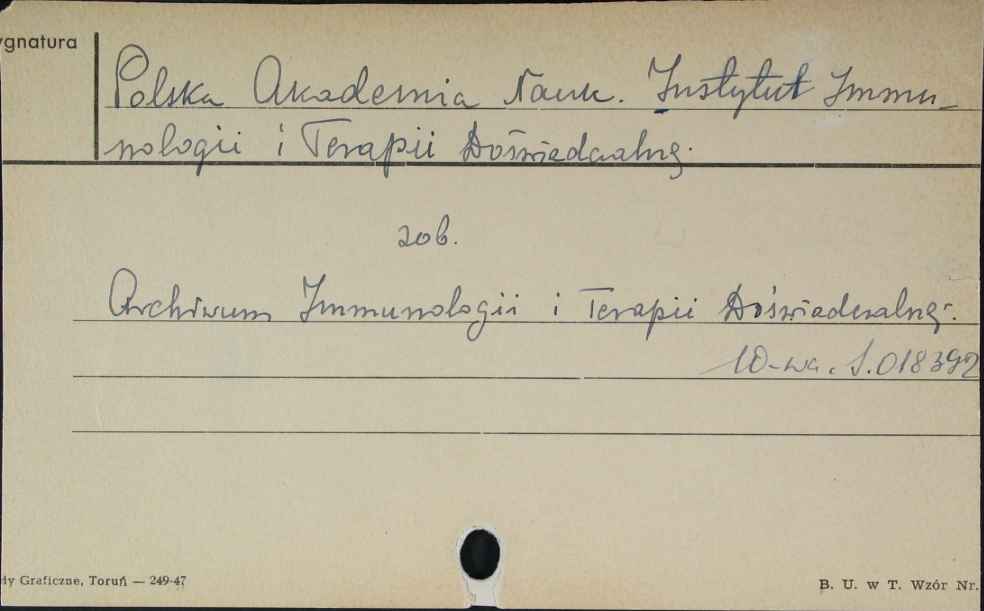 ygnatura
Polska Akademia Nauk. Instytut Immu-
nologii i Terapii Doświadczalnej.
zob.
Archiwum Immunologii i Terapii Doświadczalnej.
W-wa. S.018392
dy Graficzne, Toruń — 249-47
B. U. w T. Wzór Nr.